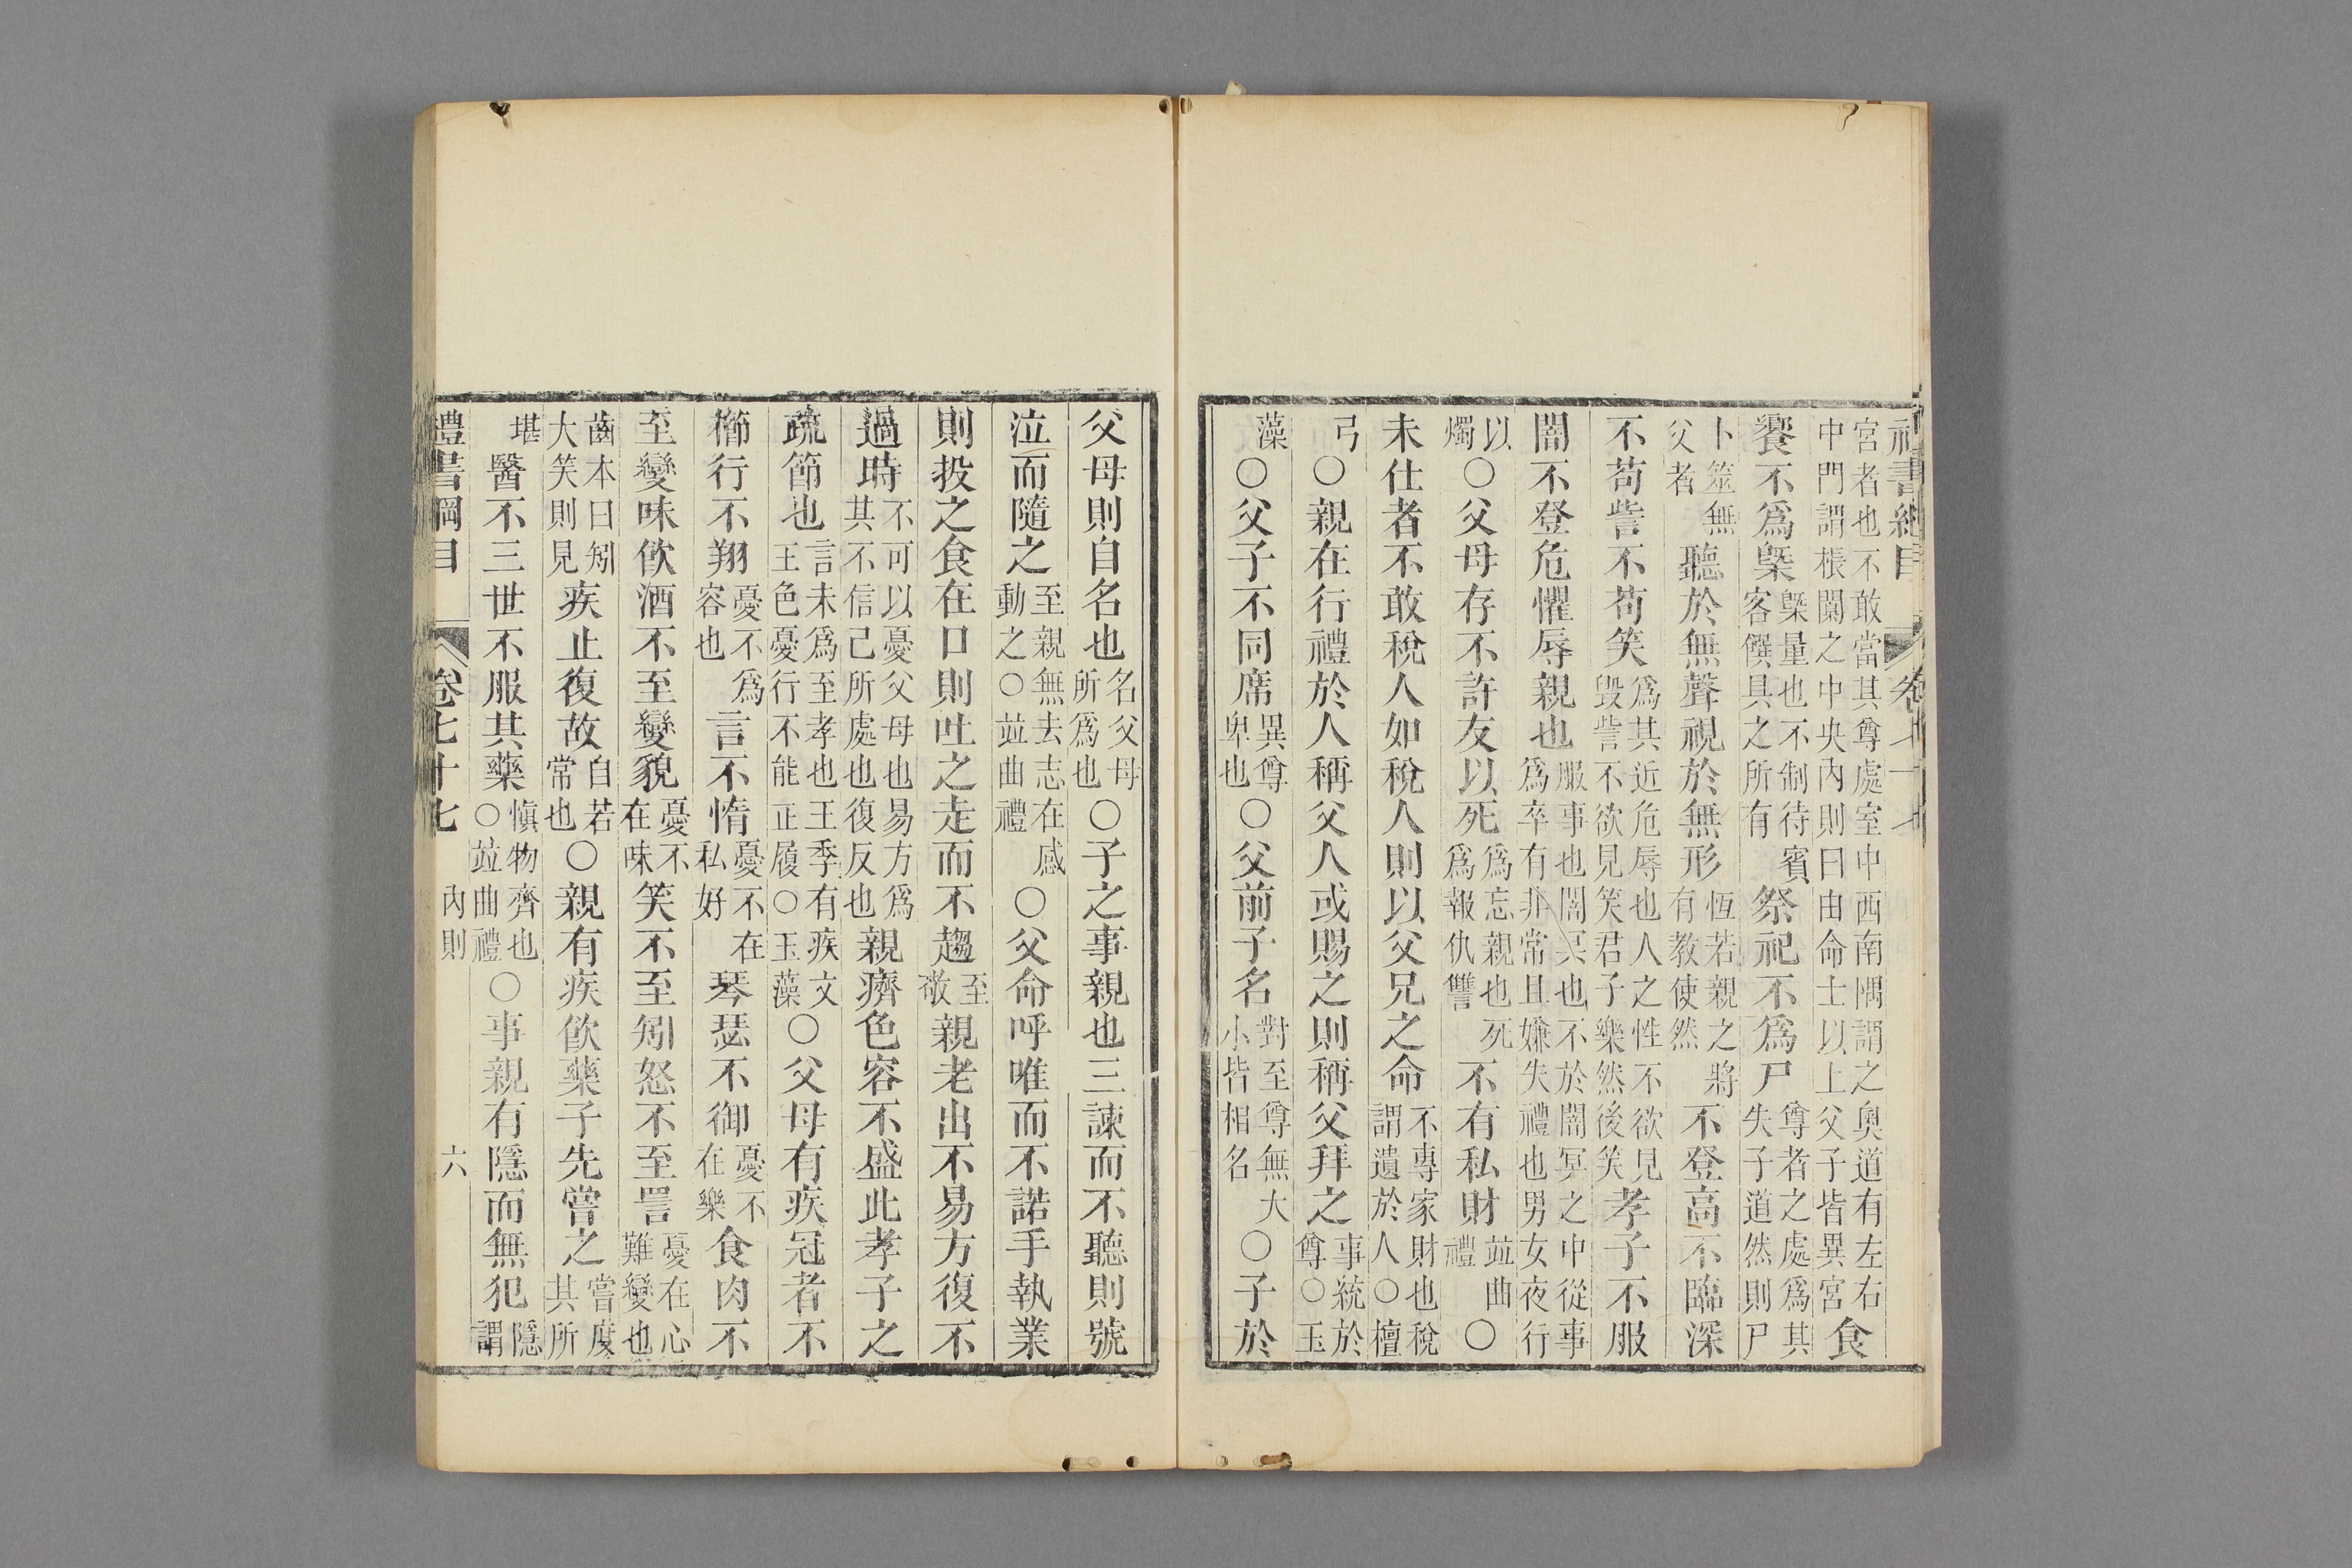 禮書綱目 卷七十七
宮者也不敢當其尊處室中西南隅謂之奧道有左右中門謂棖闑之中央內則曰由命士以上父子皆異宮食
饗不爲槩槩量也不制待賓客饌具之所有祭祀不爲尸尊者之處爲其失子道然則尸
卜筮無父者聽於無聲視於無形恆若親之將有教使然不登高不臨深
不苟訾不苟笑爲其近危辱也人之性不欲見毀訾不欲見笑君子樂然後笑孝子不服
闇不登危懼辱親也服事也闇冥也不於闇冥之中從事爲卒有非常且嫌失禮也男女夜行
以燭○父母存不許友以死爲忘親也死爲報仇讐不有私財並曲禮○
未仕者不敢稅人如稅人則以父兄之命不專家財也稅謂遺於人○檀
弓○親在行禮於人稱父人或賜之則稱父拜之事統於尊○玉
藻○父子不同席異尊卑也○父前子名對至尊無大小皆相名○子於
父母則自名也名父母所爲也○子之事親也三諫而不聽則號
泣而隨之至親無去志在感動之○並曲禮○父命呼唯而不諾手執業
則投之食在口則吐之走而不趨至敬親老出不易方復不
過時不可以憂父母也易方爲其不信己所處也復反也親癠色容不盛此孝子之
疏節也言未爲至孝也王季有疾文王色憂行不能正履○玉藻○父母有疾冠者不
櫛行不翔憂不爲容也言不惰憂不在私好琴瑟不御憂不在樂食肉不
至變味飲酒不至變貌憂不在味笑不至矧怒不至詈憂在心難變也
齒本曰矧大笑則見疾止復故自若常也○親有疾飲藥子先嘗之嘗度其所
堪醫不三世不服其藥愼物齊也○並曲禮○事親有隱而無犯隱謂
禮書綱目 卷七十七 內則 六